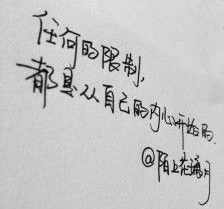 任何的限制，
都是从自己的内心开始的.
@陌上花满月